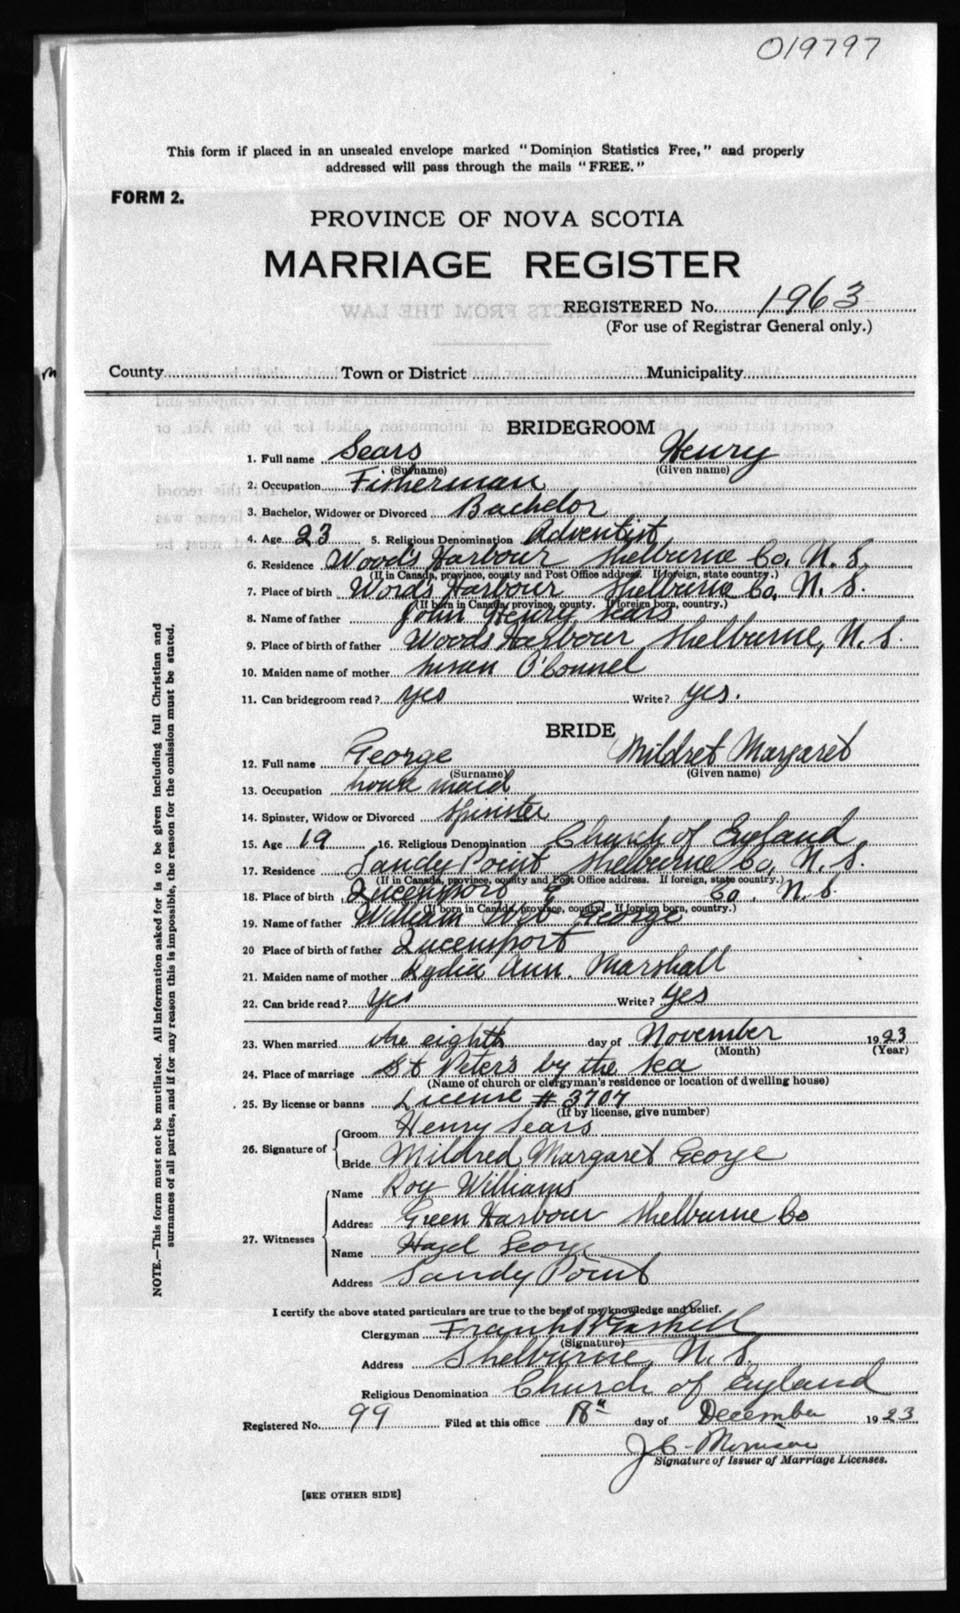 019797
This form if placed in an unsealed envelope marked "Dominion Statistics Free," and properly
addressed will pass through the mails "FREE."
FORM 2.
PROVINCE OF NOVA SCOTIA
MARRIAGE REGISTER
REGISTERED No. 1963
(For use of Registrar General only.)
County Town or District Municipality
BRIDEGROOM
1. Full name Sears Henry
(Surname) (Given name)
2. Occupation Fisherman
3. Bachelor, Widower or Divorced Bachelor
4. Age 23 5. Religious Denomination Adventist
6. Residence Wood's Harbour Shelburne Co. N. S.
(If in Canada, province, county and Post Office address. If foreign, state country.)
7. Place of birth Wood's Harbour Shelburne Co. N. S.
(If born in Canada, province, county. If foreign born, country.)
8. Name of father John Henry Sears
9. Place of birth of father Woods Harbour Shelburne, N. S.
10. Maiden name of mother Susan O'Connel
11. Can bridegroom read? yes Write? yes.
BRIDE
12. Full name George Mildret Margaret
(Surname) (Given name)
13. Occupation house maid
14. Spinster, Widow or Divorced Spinster
15. Age 19 16. Religious Denomination Church of England
17. Residence Sandy Point Shelburne Co, N. S.
(If in Canada, province, county and Post Office address. If foreign, state country.)
18. Place of birth Queensport Co. N. S.
(If born in Canada, province, county. If foreign born, country.)
19. Name of father William George
20 Place of birth of father Queensport
21. Maiden name of mother Lydia Ann. Marshall
22. Can bride read? Yes Write? yes
23. When married the eighth day of November 1923
(Month) (Year)
24. Place of marriage St Peter's by the Sea
(Name of church or clergyman's residence or location of dwelling house)
25. By license or banns License # 3707
(If by license, give number)
26. Signature of Groom Henry Sears
Bride Mildred Margaret George
27. Witnesses Name Roy Williams
Address Green Harbour Shelburne Co
Name Hazel George
Address Sandy Point
I certify the above stated particulars are true to the best of my knowledge and belief.
Clergyman Frank
(Signature)
Address Shelburne, N. S.
Religious Denomination Church of England
Registered No. 99 Filed at this office 18th day of December 1923
J C. Morrison
Signature of Issuer of Marriage Licenses.
[SEE OTHER SIDE]
NOTE.—This form must not be mutilated. All information asked for is to be given including full Christian and
surnames of all parties, and if for any reason this is impossible, the reason for the omission must be stated.